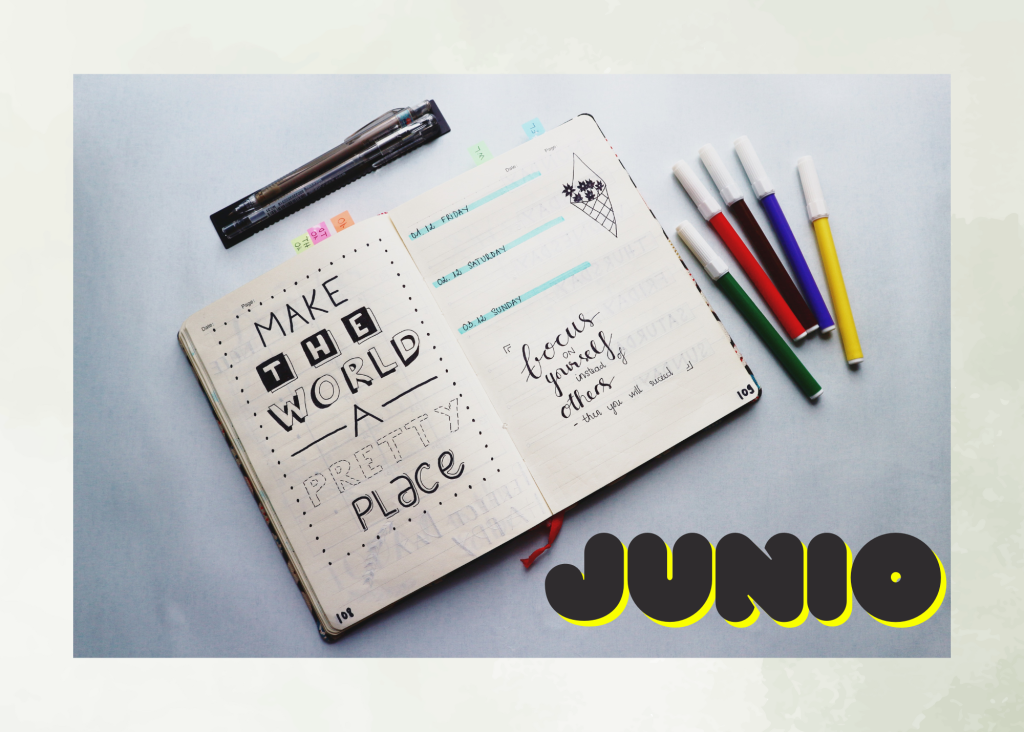 Date:
Page:
MAKE
THE
WORLD
A
PRETTY
PLACE
108
Date:
Page:
01.12 FRIDAY
02.12 SATURDAY
03.12 SUNDAY
focus
ON
yourself
instead of
others
- then you will succeed
109
JUNIO